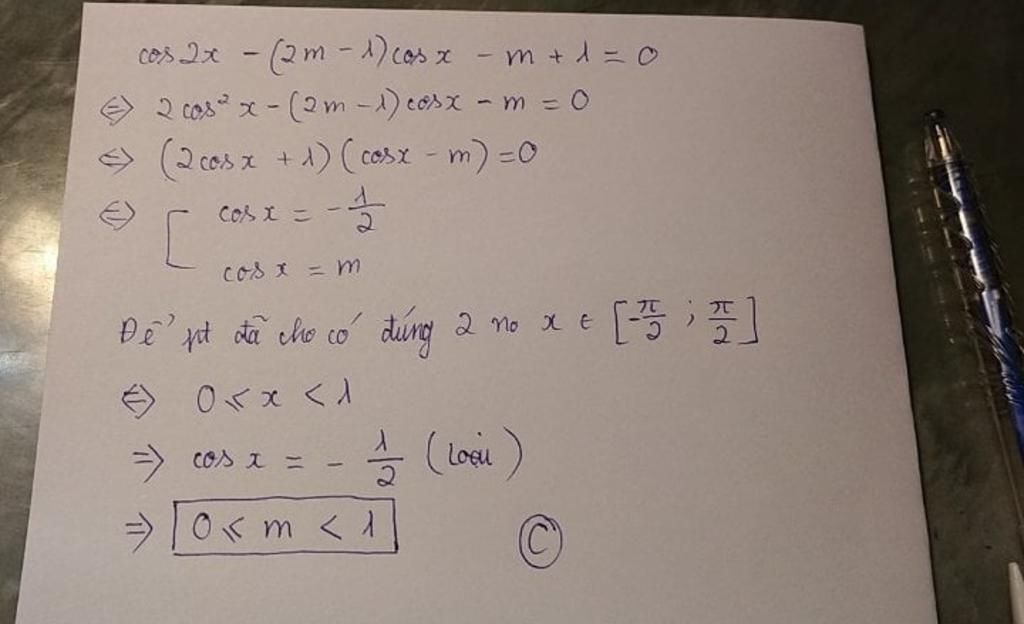 cos2x - (2m - 1)cosx - m + 1 = 0
⇔ 2cos²x - (2m - 1)cosx - m = 0
⇔ (2cosx + 1)(cosx - m) = 0
⇔ [ cosx = - 1/2
cosx = m
Để pt đã cho có đúng 2 no x ∈ [-π/2 ; π/2]
⇔ 0 ≤ x < 1
⇒ cosx = - 1/2 (loại)
⇒ 0 ≤ m < 1
C